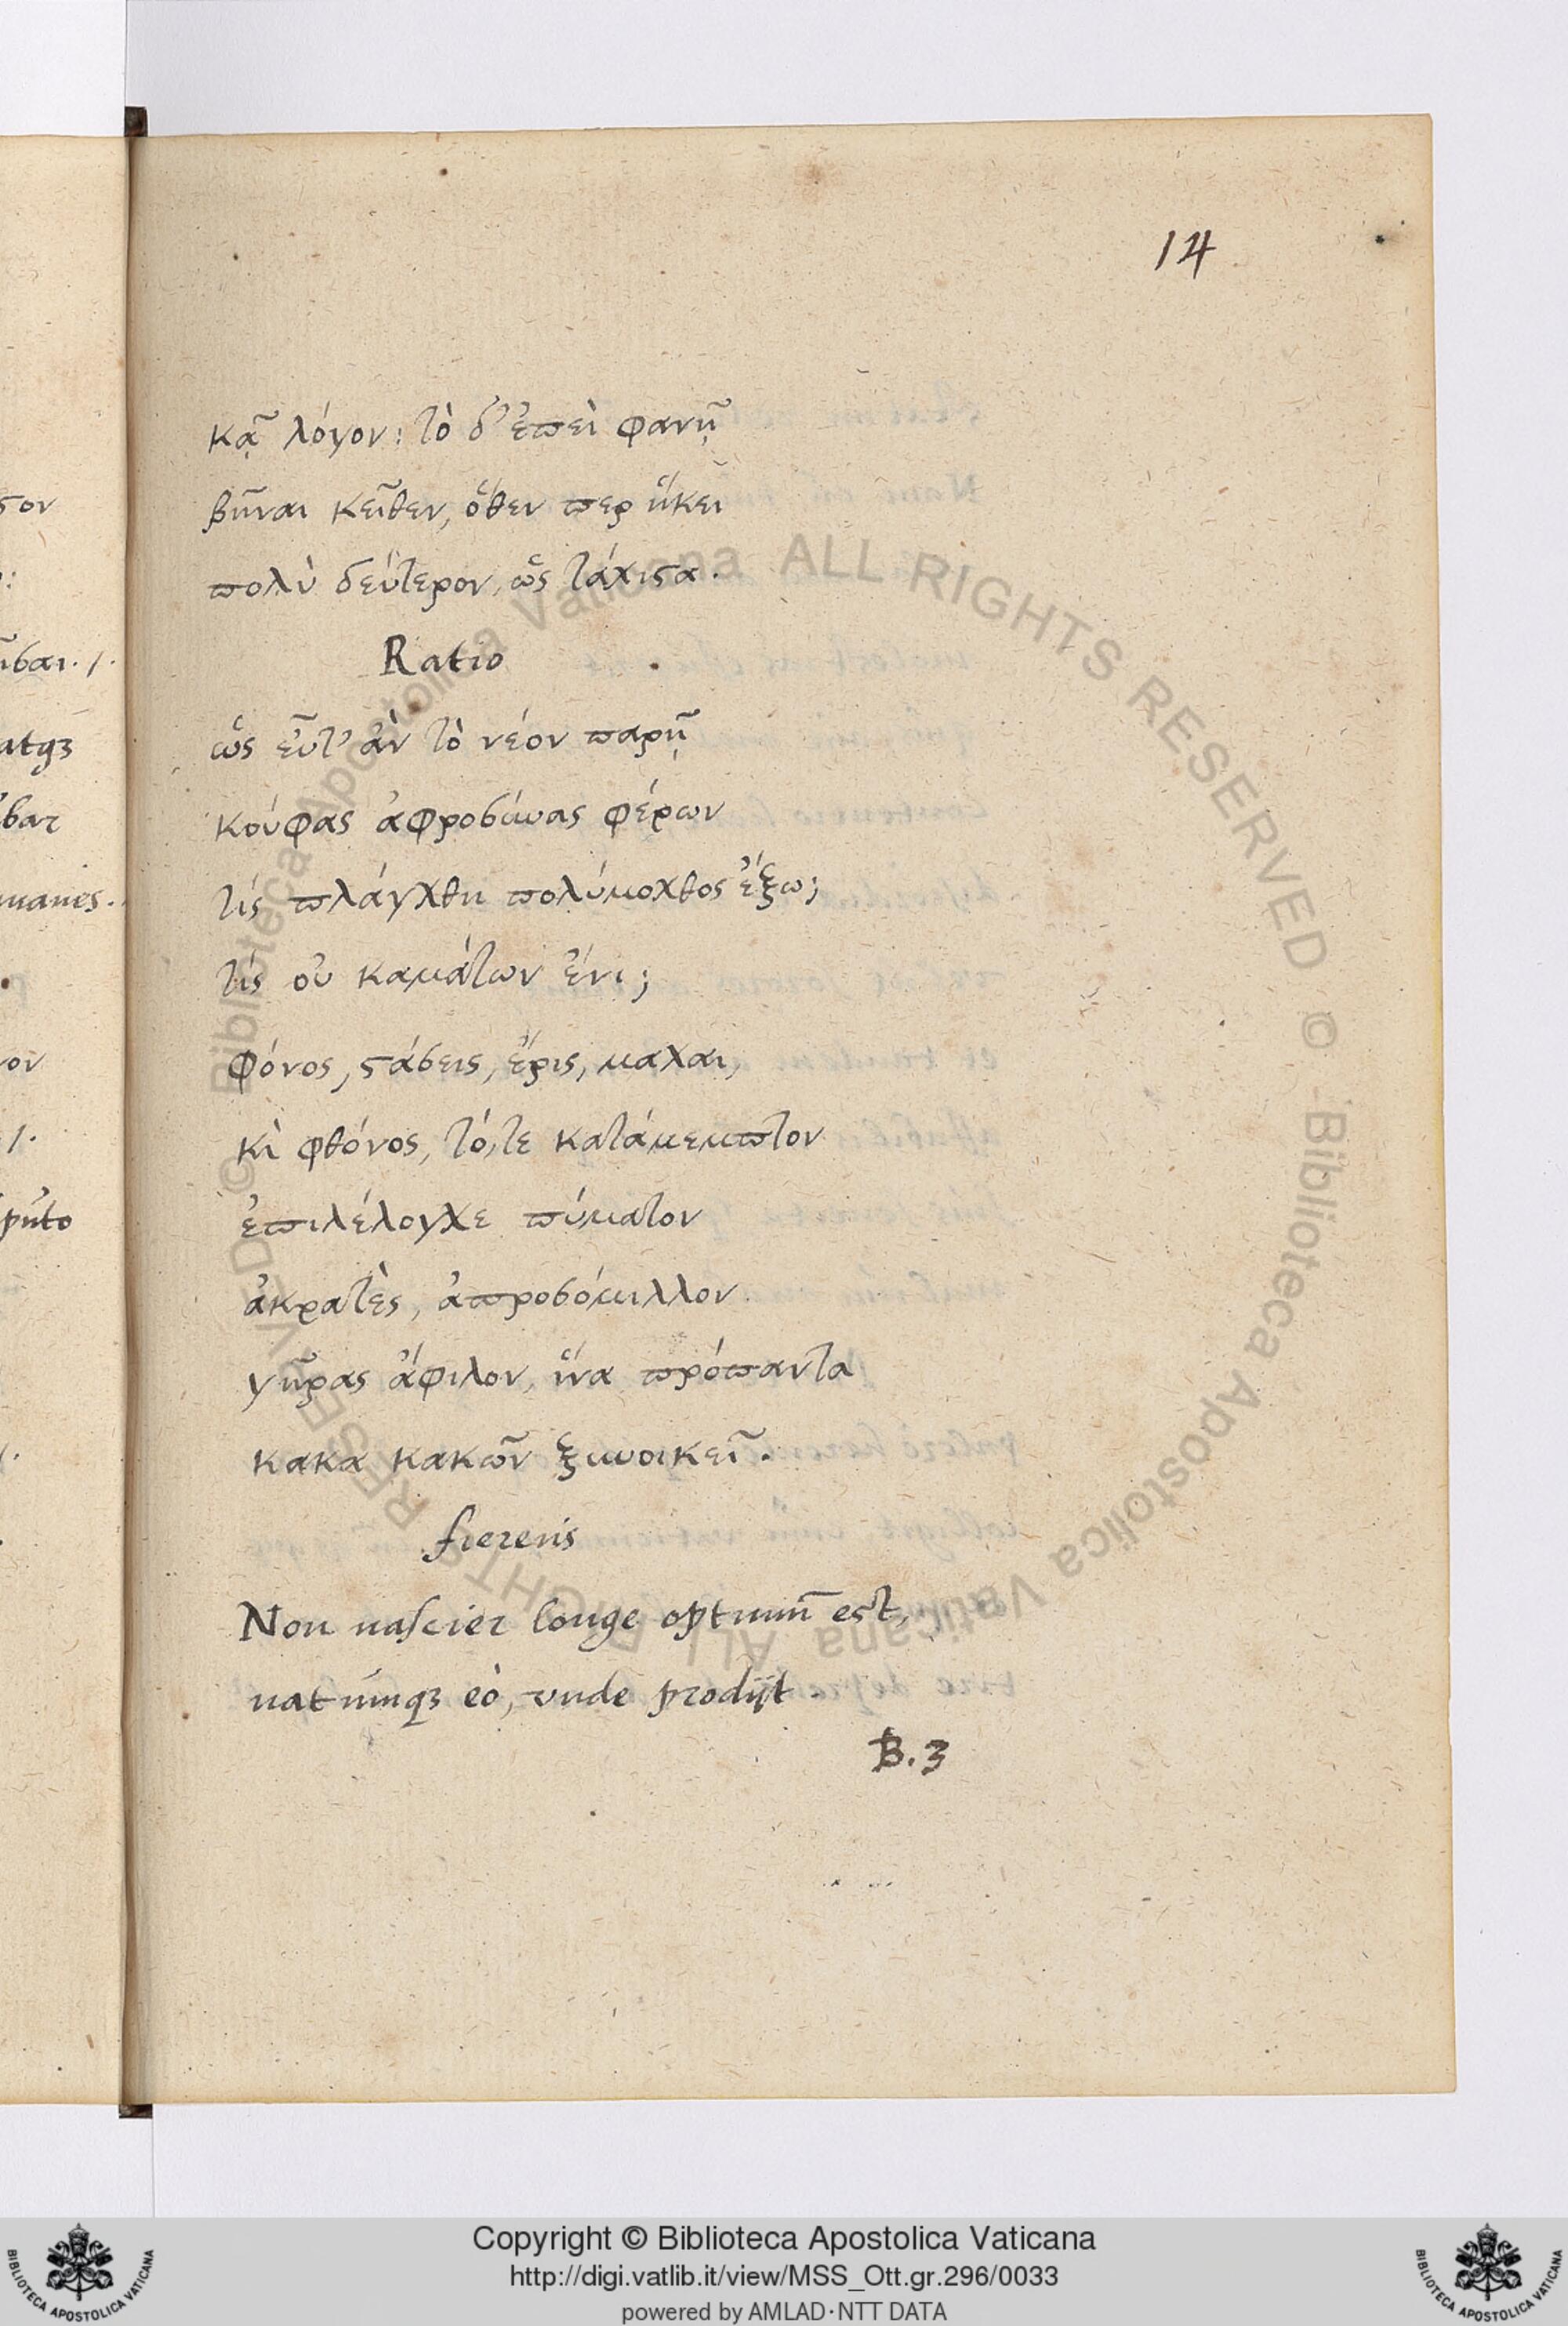 14
κᾷ λόγον: τὸ δ’ ἐπεὶ φανῇ
βῆναι κεῖθεν, ὅθεν περ ἥκει
πολὺ δεύτερον, ὡς τάχιϛα.
Ratio
ὡς εὖτ’ ἂν τὸ νέον παρῇ
κούφας ἀφροσύνας φέρων
τίς πλάγχθη πολύμοχθος ἔξω;
τίς οὐ καμάτων ἔνι;
Φόνος, ϛάσεις, ἔρις, μαχαι,
κὶ φθόνος, τό, τε κατάμεμπτον
ἐπιλέλογχε πύματον
ἀκρατὲς, ἀπροσόμιλλον
γῆρας ἄφιλον, ἵνα πρόπαντα
κακα κακῶν ξυνοικεῖ.
fiereris
Non nascier longe optimū est,
natúmqꝫ eò, vnde prodijt
B.3
ϛον
σαι./.
atqꝫ
bar
manes.
νον
/.
puto
Copyright © Biblioteca Apostolica Vaticana
http://digi.vatlib.it/view/MSS_Ott.gr.296/0033
powered by AMLAD·NTT DATA
BIBLIOTECA APOSTOLICA VATICANA
BIBLIOTECA APOSTOLICA VATICANA
© Biblioteca Apostolica Vaticana ALL RIGHTS RESERVED
© Biblioteca Apostolica Vaticana ALL RIGHTS RESERVED